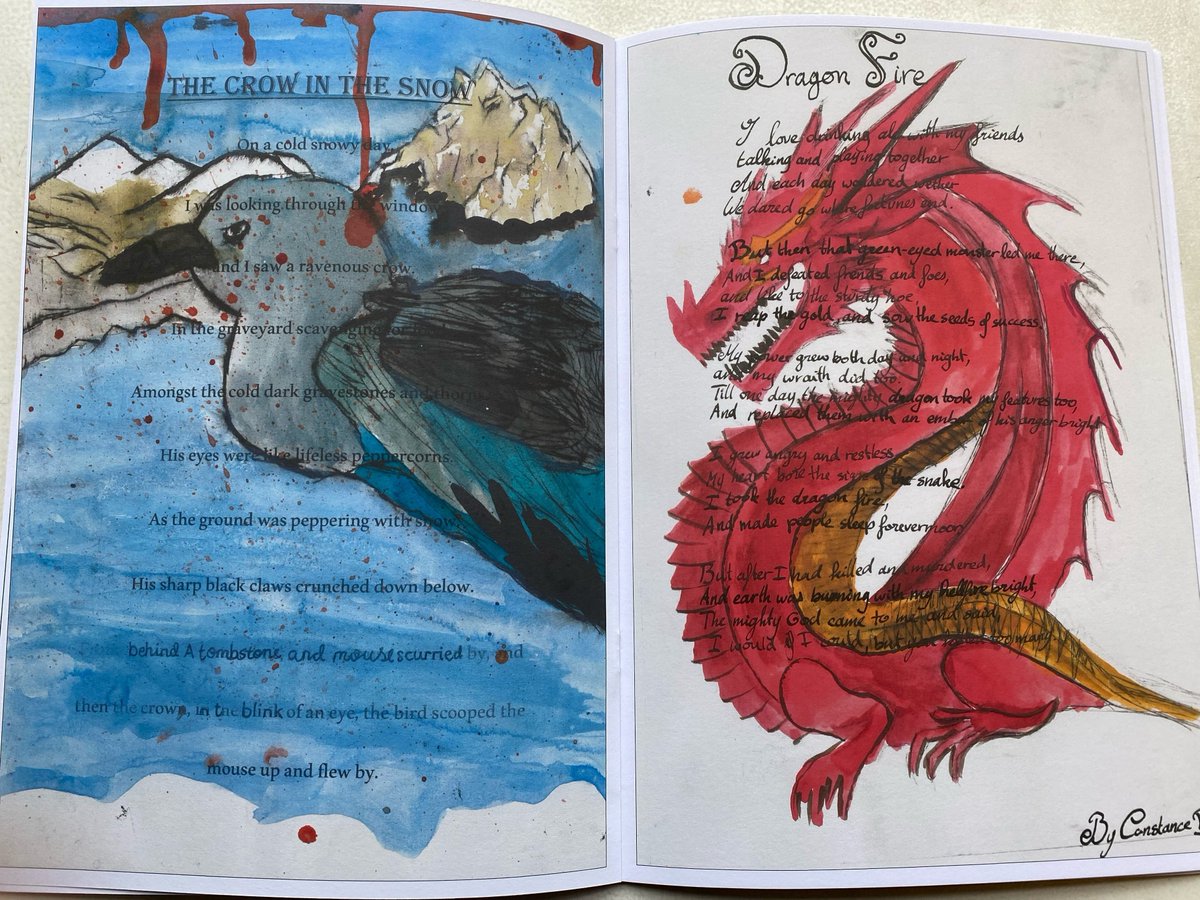 THE CROW IN THE SNOW
On a cold snowy day,
I was looking through the window
and I saw a ravenous crow.
In the graveyard scavenging for
Amongst the cold dark gravestones and thorns
His eyes were like lifeless peppercorns.
As the ground was peppering with snow,
His sharp black claws crunched down below.
behind A tombstone, and mouse scurried by, and
then the crown, in the blink of an eye, the bird scooped the
mouse up and flew by.
Dragon Fire
I love drinking ale with my friends
talking and playing together
And each day wondered wether
We dared go where fortunes end.
But then that green-eyed monster led me there,
And I defeated friends and foes,
and like to the sturdy hoe,
I reap the gold, and sow the seeds of success.
My power grew both day and night,
and my wraith did too.
Till one day, the mighty dragon took my features too,
And replaced them worth an ember of his anger bright
I grew angry and restless,
My heart bore the sign of the snake.
I took the dragon fire,
And made people sleep forevermoor.
But after I had killed and murdered,
And earth was burning with my hellfire bright,
The mighty God came to me and said,
I would if I could, but you too many
By Constance